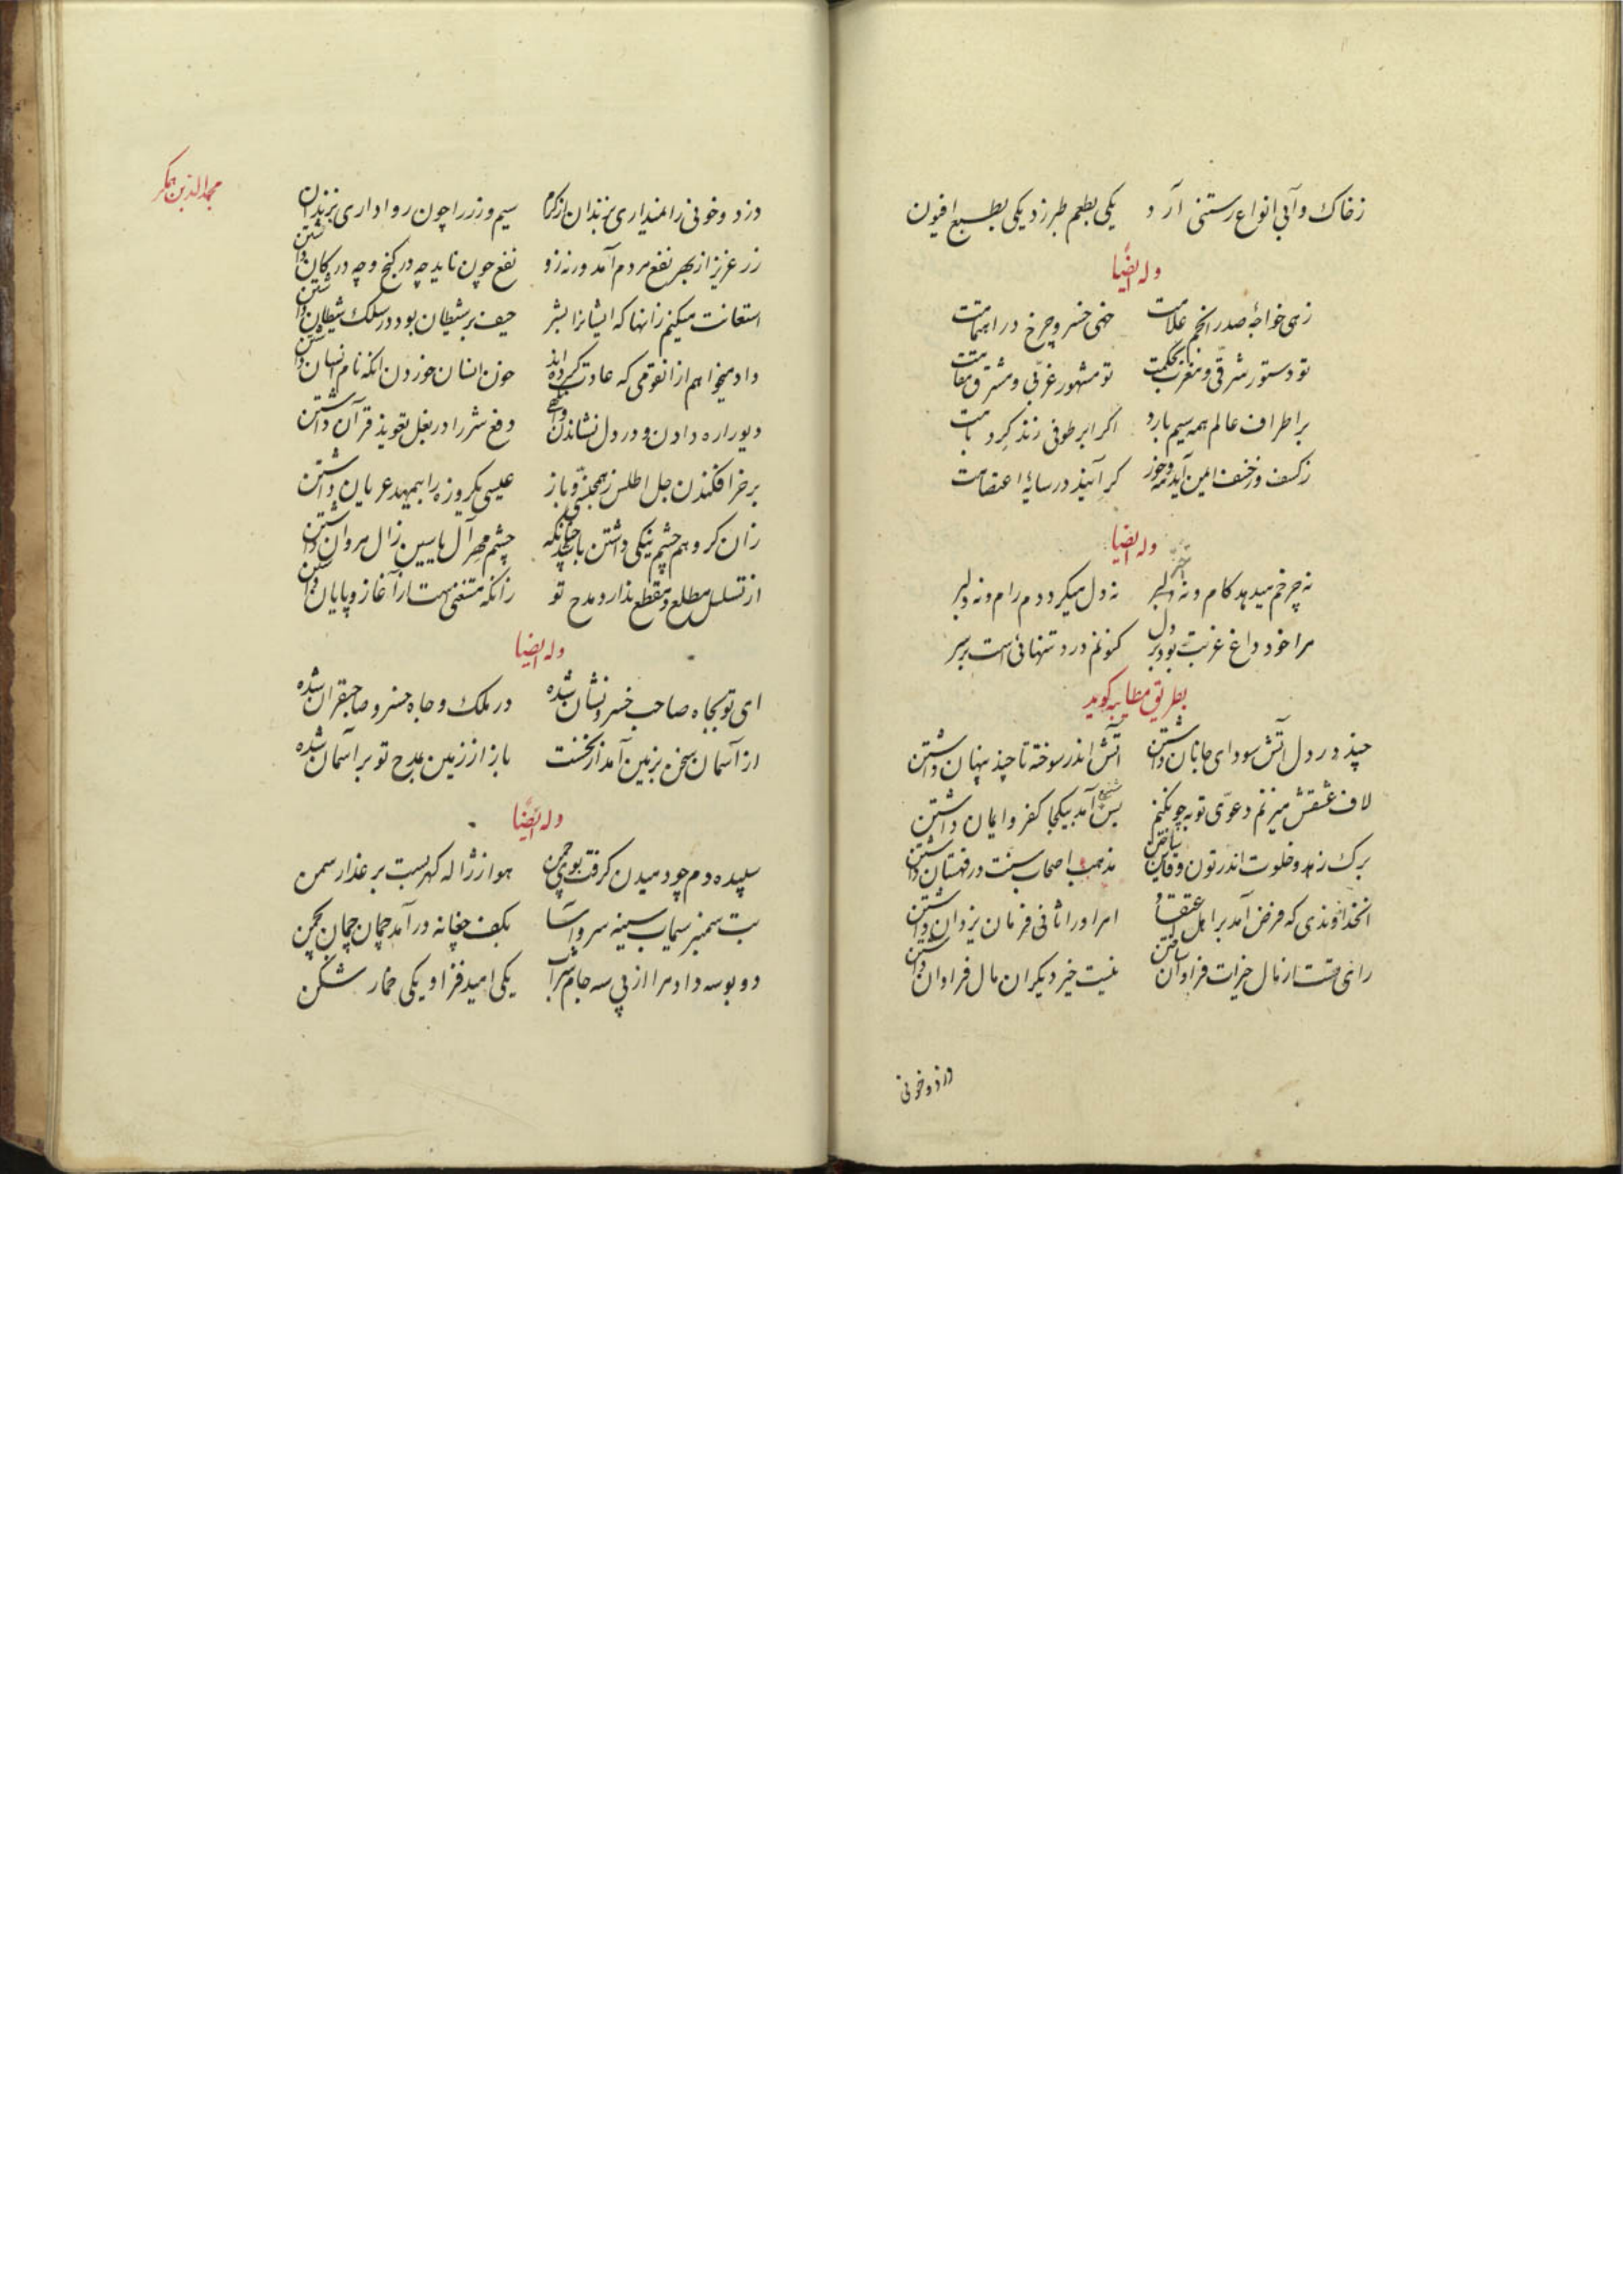 زخاک و آبی انواع رستنی آرد یکی بطعم طبرزد یکی بطبع افیون
وله ایضاً
زهی خواجهٔ صدر انجم علامت خهی خسرو چرخ در اهتمامت
تو دستور شرقی و مغرب بحکمت تو مشهور غربی و مشرق مقامت
بر اطراف عالم همه سیم بارد اگر ابر طوفی زند گرد بامت
زکسف و زخسف ایمن آید مه و خور گر آیند در سایهٔ اعتصامت
وله ایضا
نه چرخم میدهد کام و نه اختر نه دل میگرددم رام و نه دلبر
مرا خود داغ غربت بود بر دل کنونم درد تنهائی است بر سر
بطریق مطایبه کوید
چند در دل آتش سودای جانان داشتن آتش اندر سوخته تا چند پنهان داشتن
لاف عشقش میزنم دعوی توبه چون کنم بس شنیع آمد بیکجا کفر و ایمان داشتن
برک زهد و خلوت اندر تون و قاین ساختن مذهب اصحاب سنت در قهستان داشتن
آنخداوندی که فرض آمد بر اهل اعتقاد امر او را ثانی فرمان یزدان داشتن
رای تست از مال خیرات فراوان ساختن نیست خیر دیکران مال فراوان داشتن
دزد و خونی
مجد الدین همکر
دزد و خونی را نمیداری بزندان از کرم سیم و زر را چون رواداری بزندان داشتن
زر عزیز از بهر نفع مردم آمد ورنه زو نفع چون ناید چه در کنج و چه در کان داشتن
استعانت میکنم زانها که ایشانرا بشر حیف بر شیطان بود در سلک شیطان داشتن
داد میخواهم از انقومی که عادت کرده اند خون انسان خوردن آنکه نام انسان داشتن
دیو را ره دادن و در دل نشاندن وانگهی دفع شر را در بغل تعویذ قرآن داشتن
بر خر افکندن جل اطلس ز همجنسی و باز عیسی یکروزه را بیمهد عریان داشتن
زان کروهم چشم نیکی داشتن باشد چنانکه چشم مهر آل یاسین زال مروان داشتن
از تسلسل مطلع و مقطع ندارد مدح تو زانکه مستغنی است از آغاز و پایان داشتن
وله ایضا
ای تو بجاه صاحب خسرو نشان شده در ملک و جاه خسرو صاحبقران شده
از آسمان سخن بزمین آمد از نخست باز از زمین بمدح تو بر آسمان شده
وله ایضاً
سپیده دم چو دمیدن کرفت بوی چمن هوا ز ژاله کهر بست بر عذار سمن
بت سمنبر سیماب سینه سرو آسا بکف چغانه در آمد چمان چمان بچمن
دو بوسه داد مرا از پی سه جام شراب یکی امید فزا و یکی خمار شکن